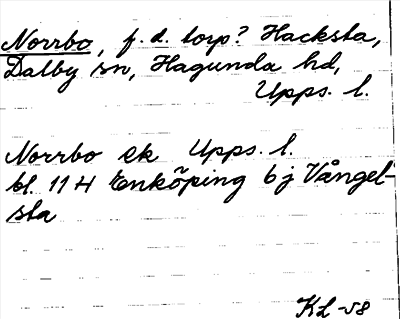 Norrbo, f. d. torp? Hacksta,
Dalby sn, Hagunda hd,
Upps. l.
Norrbo ek Upps. l.
bl. 11 H Enköping 6 j Vångel-
sta
KL -58